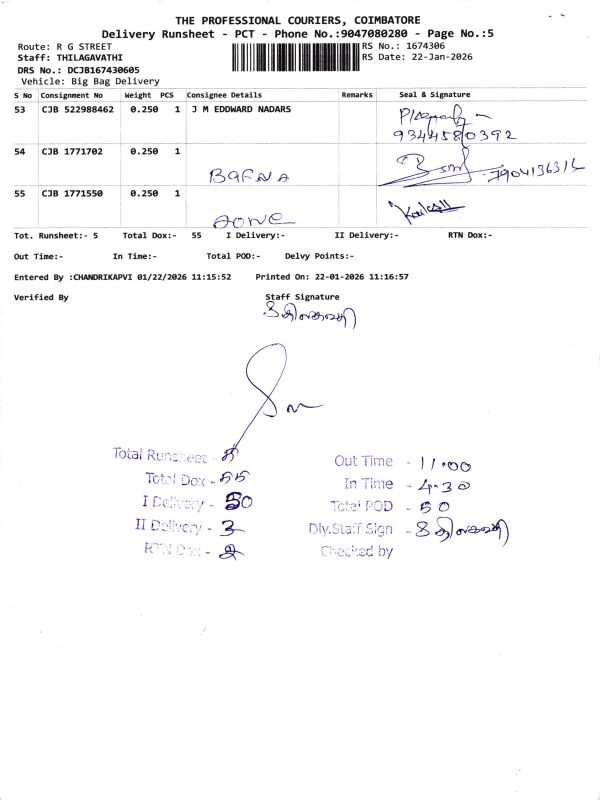 THE PROFESSIONAL COURIERS, COIMBATORE
Delivery Runsheet - PCT - Phone No.:9047080280 - Page No.:5
Route: R G STREET RS No.: 1674306
Staff: THILAGAVATHI RS Date: 22-Jan-2026
DRS No.: DCJB167430605
Vehicle: Big Bag Delivery
S No Consignment No Weight PCS Consignee Details Remarks Seal & Signature
53 CJB 522988462 0.250 1 J M EDDWARD NADARS
9344580392
54 CJB 1771702 0.250 1
BAFNA 7904136314
55 CJB 1771550 0.250 1
AONE Kailash
Tot. Runsheet:- 5 Total Dox:- 55 I Delivery:- II Delivery:- RTN Dox:-
Out Time:- In Time:- Total POD:- Delvy Points:-
Entered By :CHANDRIKAPVI 01/22/2026 11:15:52 Printed On: 22-01-2026 11:16:57
Verified By Staff Signature
திலகவதி
Total Runsheet - 5 Out Time - 11.00
Total Dox - 55 In Time - 4.30
I Delivery - 50 Total POD - 50
II Delivery - 3 Dly.Staff Sign - திலகவதி
RTN Dox - 2 Checked by